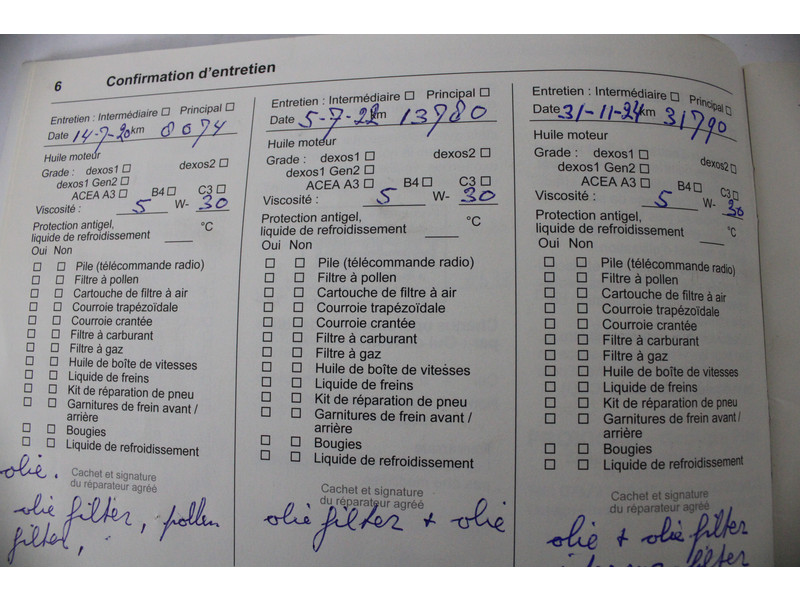 6 Confirmation d'entretien
Entretien : Intermédiaire ☐ Principal ☐
Date 14-7-20 km 8074
Huile moteur
Grade : dexos1 ☐ dexos2 ☐
dexos1 Gen2 ☐
ACEA A3 ☐ B4 ☐ C3 ☐
Viscosité : 5 W- 30
Protection antigel,
liquide de refroidissement ____ °C
Oui Non
☐ ☐ Pile (télécommande radio)
☐ ☐ Filtre à pollen
☐ ☐ Cartouche de filtre à air
☐ ☐ Courroie trapézoïdale
☐ ☐ Courroie crantée
☐ ☐ Filtre à carburant
☐ ☐ Filtre à gaz
☐ ☐ Huile de boîte de vitesses
☐ ☐ Liquide de freins
☐ ☐ Kit de réparation de pneu
☐ ☐ Garnitures de frein avant /
arrière
☐ ☐ Bougies
☐ ☐ Liquide de refroidissement
olie.
Cachet et signature
du réparateur agréé
olie filter, pollen
filter,
Entretien : Intermédiaire ☐ Principal ☐
Date 5-7-22 km 13780
Huile moteur
Grade : dexos1 ☐ dexos2 ☐
dexos1 Gen2 ☐
ACEA A3 ☐ B4 ☐ C3 ☐
Viscosité : 5 W- 30
Protection antigel,
liquide de refroidissement ____ °C
Oui Non
☐ ☐ Pile (télécommande radio)
☐ ☐ Filtre à pollen
☐ ☐ Cartouche de filtre à air
☐ ☐ Courroie trapézoïdale
☐ ☐ Courroie crantée
☐ ☐ Filtre à carburant
☐ ☐ Filtre à gaz
☐ ☐ Huile de boîte de vitesses
☐ ☐ Liquide de freins
☐ ☐ Kit de réparation de pneu
☐ ☐ Garnitures de frein avant /
arrière
☐ ☐ Bougies
☐ ☐ Liquide de refroidissement
Cachet et signature
du réparateur agréé
olie filter + olie
Entretien : Intermédiaire ☐ Principal ☐
Date 31-11-24 km 31790
Huile moteur
Grade : dexos1 ☐ dexos2 ☐
dexos1 Gen2 ☐
ACEA A3 ☐ B4 ☐ C3 ☐
Viscosité : 5 W- 30
Protection antigel,
liquide de refroidissement ____ °C
Oui Non
☐ ☐ Pile (télécommande radio)
☐ ☐ Filtre à pollen
☐ ☐ Cartouche de filtre à air
☐ ☐ Courroie trapézoïdale
☐ ☐ Courroie crantée
☐ ☐ Filtre à carburant
☐ ☐ Filtre à gaz
☐ ☐ Huile de boîte de vitesses
☐ ☐ Liquide de freins
☐ ☐ Kit de réparation de pneu
☐ ☐ Garnitures de frein avant /
arrière
☐ ☐ Bougies
☐ ☐ Liquide de refroidissement
Cachet et signature
du réparateur agréé
olie + olie filter
filter